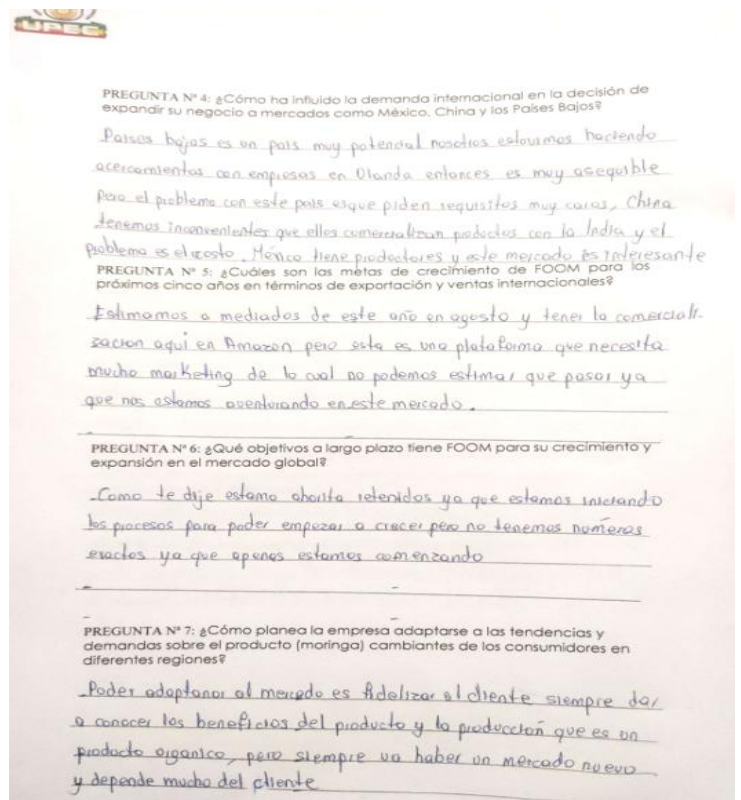 UPEC
PREGUNTA Nº 4: ¿Cómo ha influido la demanda internacional en la decisión de
expandir su negocio a mercados como México, China y los Países Bajos?
Paises bajos es un pais muy potencial nosotros estouimos haciendo
acercamientos con empresas en Olanda entonces es muy asequible
pero el problema con este pais esque piden requisitos muy caros, China
tenemos inconvenientes que ellos comercializan productos con la India y el
problema es el costo. Mexico tiene productores y este mercado es interesante
PREGUNTA Nº 5: ¿Cuáles son las metas de crecimiento de FOOM para los
próximos cinco años en términos de exportación y ventas internacionales?
Estimamos a mediados de este año en agosto y tener la comerciali-
zacion aqui en Amazon pero esta es una plataforma que necesita
mucho marketing de lo cual no podemos estimar que pasar ya
que nos estamos aventurando en este mercado.
PREGUNTA Nº 6: ¿Qué objetivos a largo plazo tiene FOOM para su crecimiento y
expansión en el mercado global?
Como te dije estamo ahorita retenidos ya que estamos iniciando
los procesos para poder empezar a crecer pero no tenemos numeros
exactos ya que apenas estamos comenzando
PREGUNTA Nº 7: ¿Cómo planea la empresa adaptarse a las tendencias y
demandas sobre el producto (moringa) cambiantes de los consumidores en
diferentes regiones?
Poder adaptanos al mercado es fidelizar al cliente siempre dar
a conocer los beneficios del producto y la producción que es un
producto organico, pero siempre va haber un mercado nuevo
y depende mucho del cliente